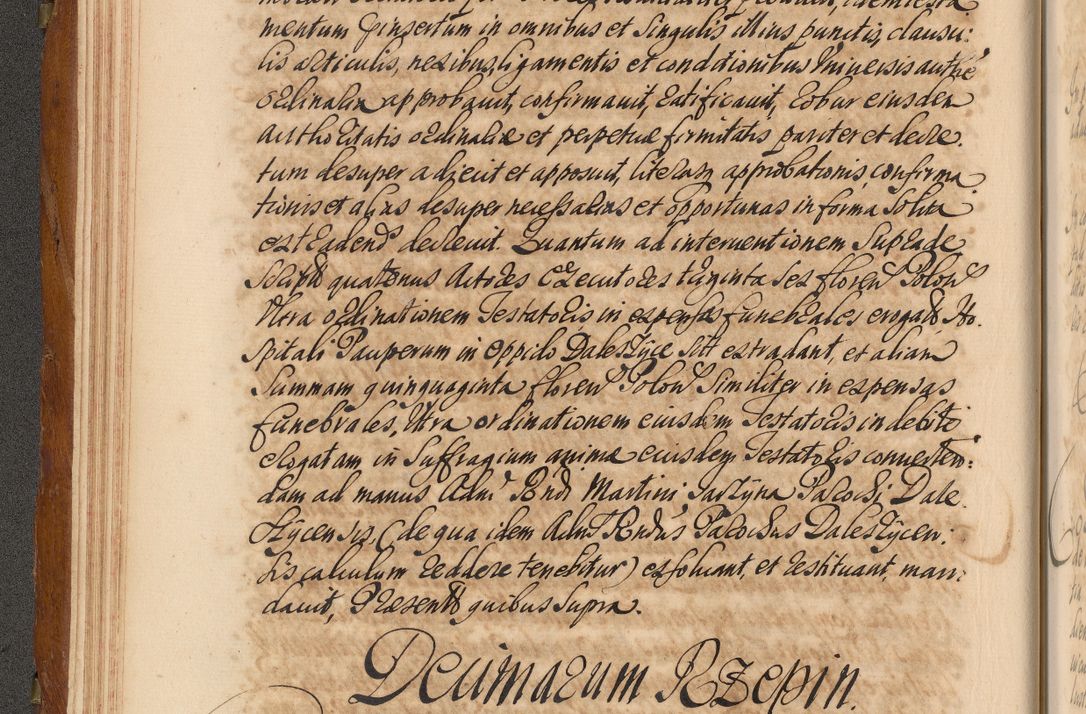 mentum insertum in omnibus et Singulis illius punctis, clausu:
lis articulis, nexibus, ligamentis et conditionibus Universis autho
ordinaria approbavit, confirmavit, ratificavit, robur eiusdem
authoritatis ordinariæ et perpetuæ firmitatis pariter et decre.
tum desuper adiecit et apposuit, literasq approbationis, confirma
tionis et alias desuper necessarias et opportunas in forma solita
extradend decrevit. Quantum ad interventionem Suprade
script quatenus Actores Executores triginta sex floren Polon
Ultra ordinationem Testatoris in expensas funebrales erogat Ho.
spitali Pauperum in oppido Daleszyce sit extradant, et aliam
Summam quinquaginta floren Polon Similiter in expensas
funebrales, Ultra ordinationem eiusdem Testatoris indebite
erogatam in Suffragium animæ eiusdem Testatoris converten:
dam ad manus Adm Rndi Martini Parochi Dale
szycensis, (de qua idem Adm Rndus Parochus Daleszycen:
sis calculum reddere tenebitur) exsolvant, et restituant, man:
davit, Præsentt quibus Supra.
Decimarum Rzepin.